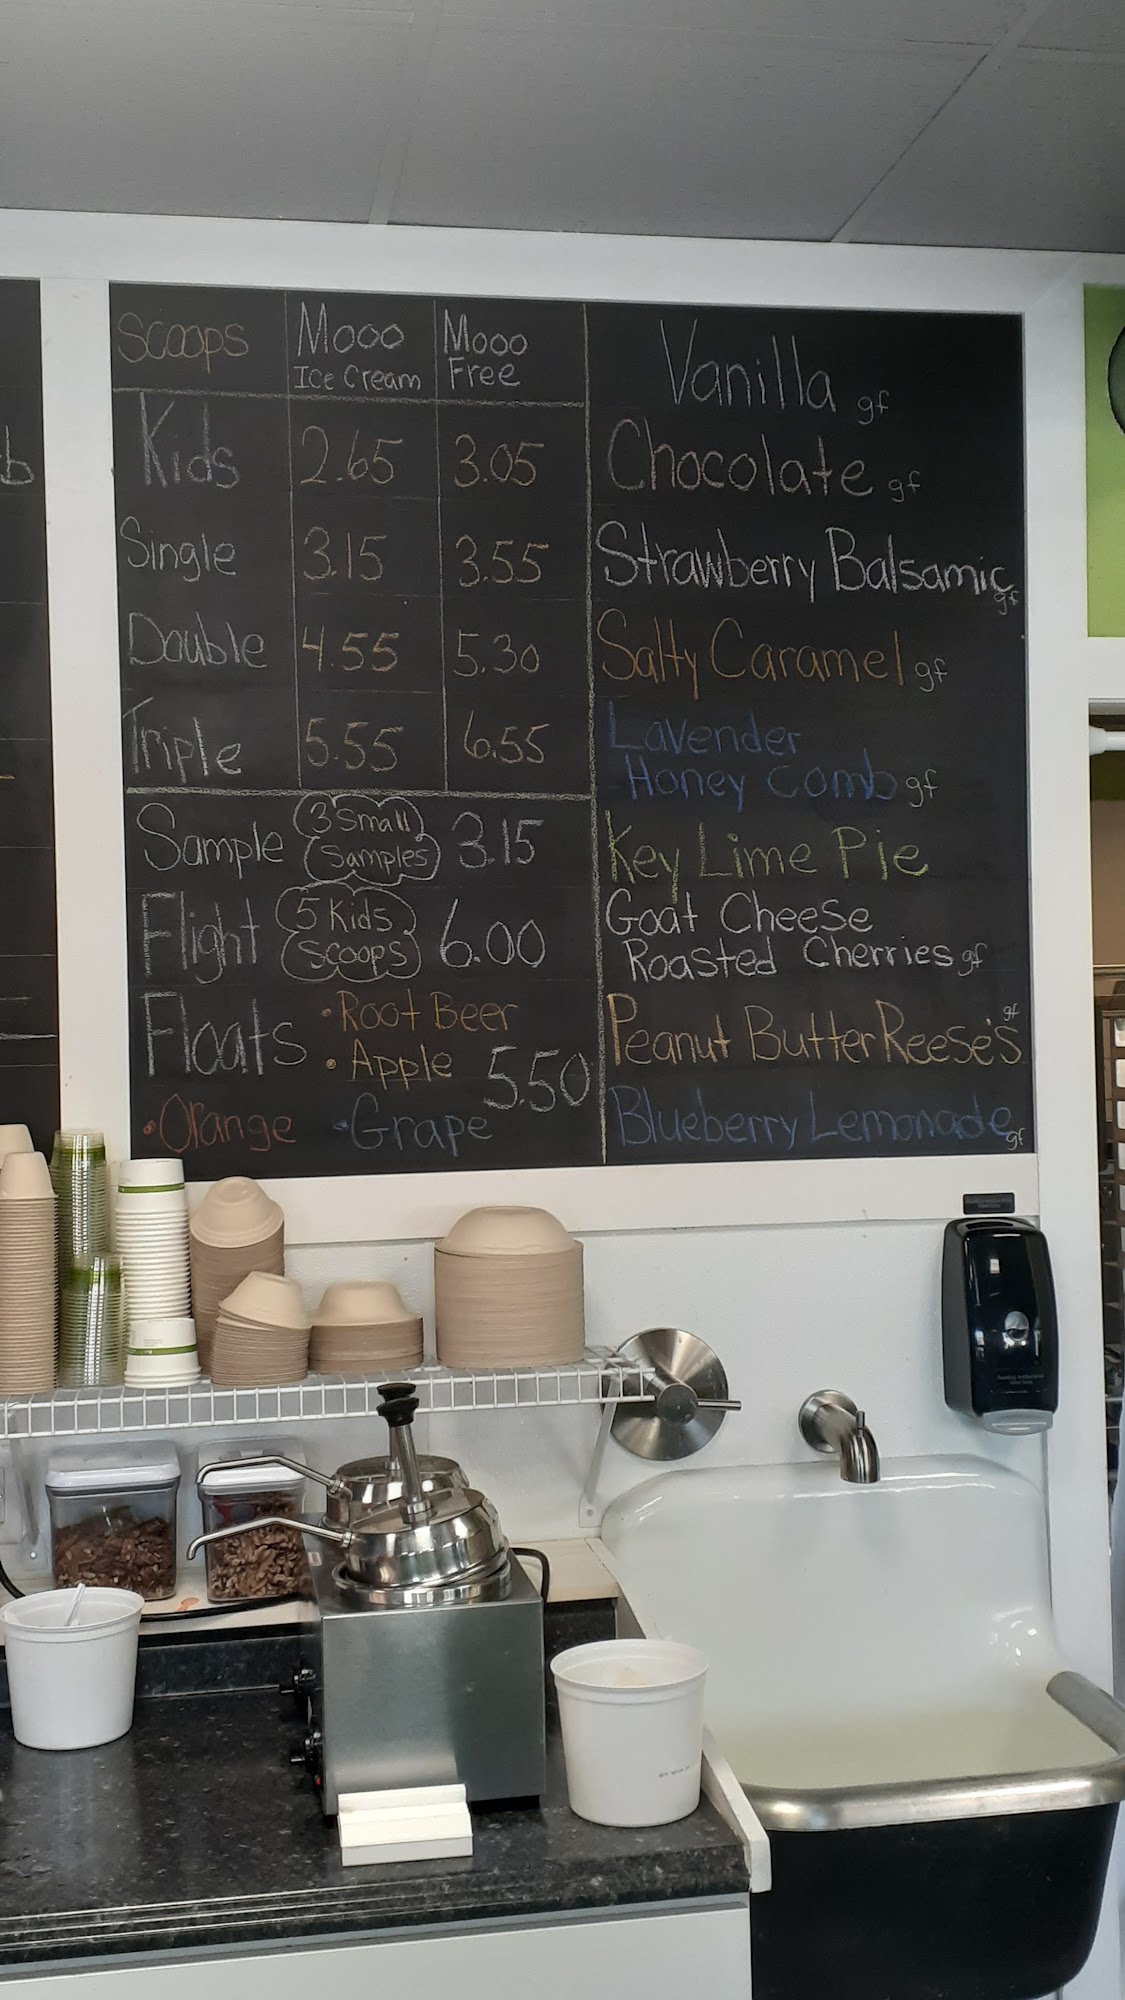 b
Scoops Mooo Ice Cream Mooo Free
Kids 2.65 3.05
Single 3.15 3.55
Double 4.55 5.30
Triple 5.55 6.55
Sample (3 Small Samples) 3.15
Flight (5 Kids Scoops) 6.00
Floats • Root Beer
• Apple 5.50
• Orange • Grape
Vanilla gf
Chocolate gf
Strawberry Balsamic gf
Salty Caramel gf
Lavender
Honey comb gf
Key Lime Pie
Goat Cheese
Roasted Cherries gf
Peanut Butter Reese's gf
Blueberry Lemonade gf